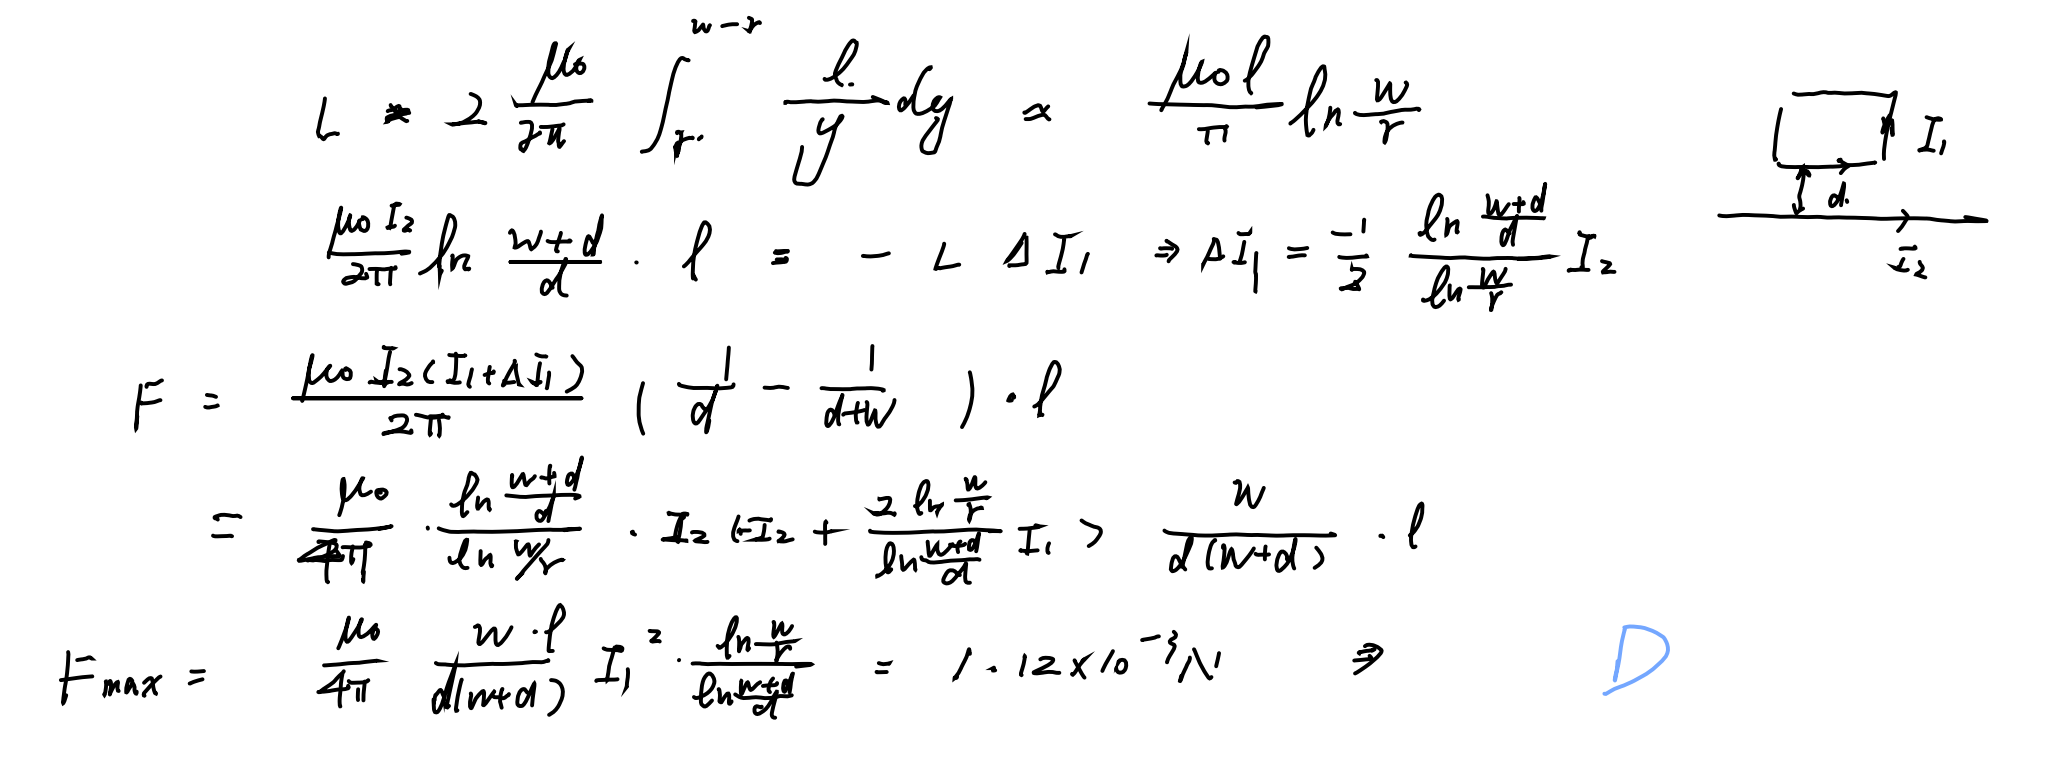 L = 2 \frac{μ₀}{2π} \int_{r}^{w-r} \frac{l}{y} dy ≈ \frac{μ₀ l}{π} ln \frac{w}{r}
I₁
d
I₂
\frac{μ₀ I₂}{2π} ln \frac{w+d}{d} · l = - L Δ I₁ ⇒ ΔI₁ = \frac{-1}{2} \frac{ln \frac{w+d}{d}}{ln \frac{w}{r}} I₂
F = \frac{μ₀ I₂ (I₁+ΔI₁)}{2π} ( \frac{1}{d} - \frac{1}{d+w} ) · l
= \frac{μ₀}{4π} · \frac{ln \frac{w+d}{d}}{ln w/r} · I₂ (-I₂ + \frac{2 ln \frac{w}{r}}{ln \frac{w+d}{d}} I₁) \frac{w}{d(w+d)} · l
F_{max} = \frac{μ₀}{4π} \frac{w·l}{d(w+d)} I₁² · \frac{ln \frac{w}{r}}{ln \frac{w+d}{d}} = 1.12×10⁻³N ⇒ D